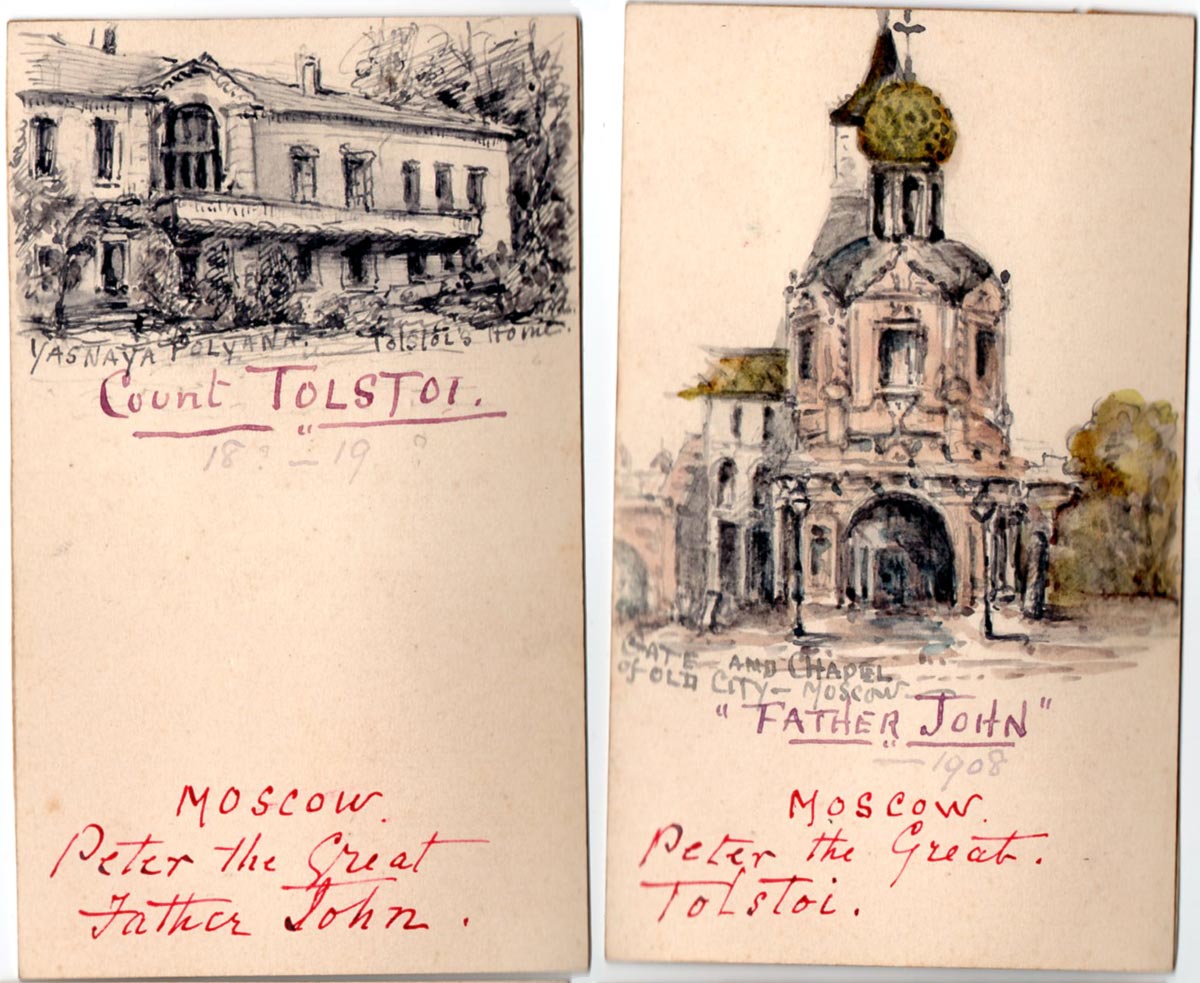 YASNAYA POLYANA. Tolstoi's Home.
Count TOLSTOI.
18? - 19 ?
MOSCOW.
Peter the Great
Father John.
GATE AND CHAPEL
of OLD CITY - MOSCOW
"FATHER JOHN"
- 1908
MOSCOW.
Peter the Great.
Tolstoi.